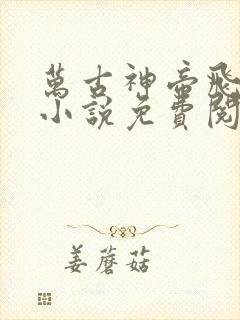 萬古神帝飛
小說免費閱
姜蘑菇